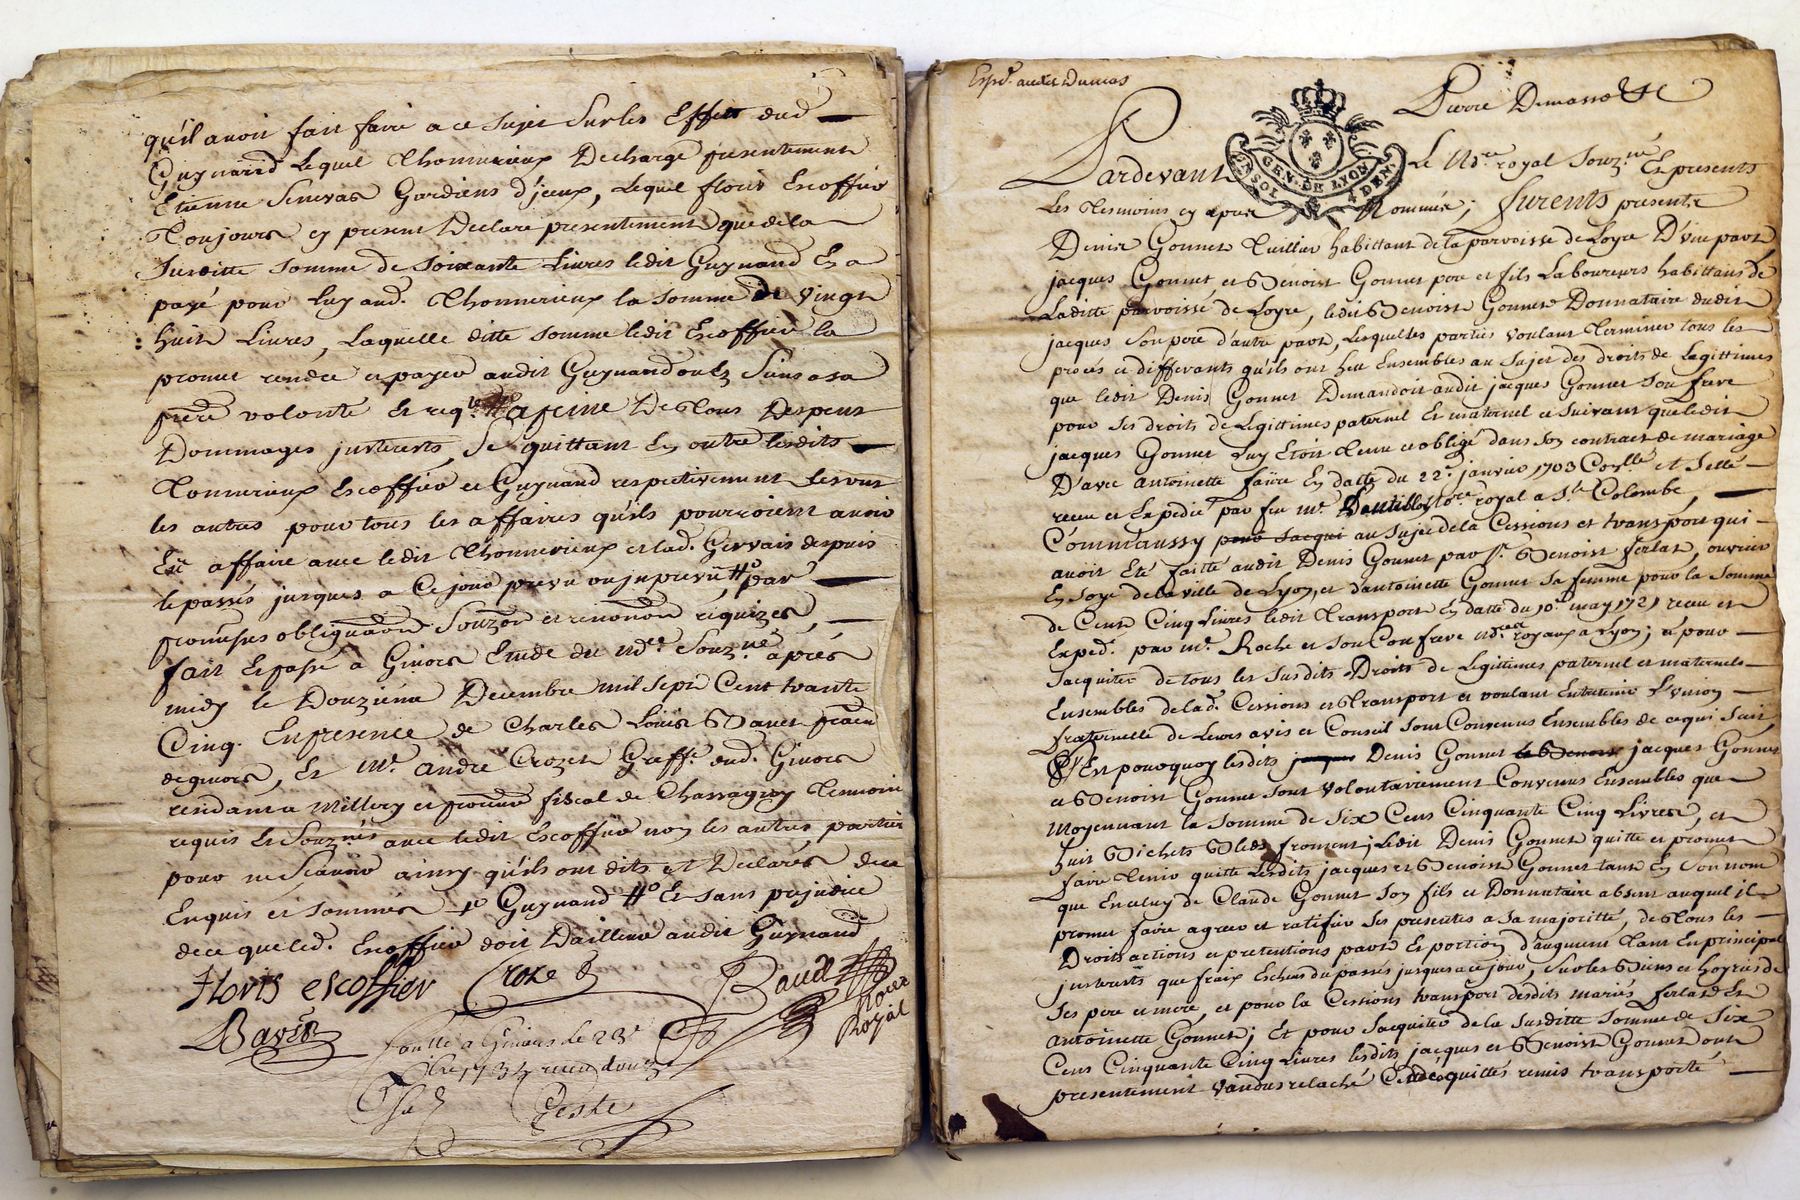 qu'il avoit fait faire a ce sujet Sur les Effets dud
Guynand Lequel Thonnerieux Decharge presentement
Etienne Senevas Gardiens d'jceux, Lequel floris Escoffier
Toujours ey present Declare presentement que de la
Susditte somme de soixante Livres ledit Guynand En a
payé pour luy aud. Thonnerieux la somme de vingt
huit Livres, Laquelle ditte somme ledit Escoffier la
promet rendre et payer audit Guynand ou Sans a sa
pre volonté Et req a peine De tous Despens
Dommages jnterests, Se quittant En outre lesdits
Tonnerieux Escoffier et Guynand respectivement les uns
les autres pour tous les affaires qu'ils pourroient avoir
Eu affaire avec ledit Thonnerieux et lad. Gervais depuis
le passés jusques a Ce jour prevu ou jnprevu par
promesses obligaõn Souzõn et renonõn requizes,
fait Et passé a Givors Etude du Nre Souzné après
midy le Douzieme Decembre mil Sept Cent trante
Cinq. En presence de Charles Louis Bavet
de givors, Et Me. andré Crozet Greff. dud. Givors
residant a Millery et fiscal de Chassagny Temoins
requis Et Souznés avec ledit Escoffier non les autres parties
pour ne Scavoir ainsy qu'ils ont dits et Declarés de ce
Enquis et sommés Guynand Et sans prejudice
de ce que led. Escoffier doit D'ailleur audit Guynand
floris escoffier Croze Baud
Bavet nore Royal
Controllé a Givors le 23e
1735 receu douze
Teste
Expd. audit Dumas
Pierre Demasso &c
Pardevant Le Nre royal Souzné Et presents
GEN. DE LYON
SOL DEN.
Les Tesmoins ey apres Nommés; furents presents
Denis Gonnet Tuillier habittant de la parroisse de Loyre D'une part
jacques Gonnet et Benoist Gonnet pere et fils Laboureurs habittans de
Laditte parroisse de Loyre, ledit Benoist Gonnet Donnataire dudit
jacques Son pere d'autre part, Lesquelles parties voulant Terminer tous les
procés et differants qu'ils ont heu Ensembles au Sujet des droits de Legittimes
que ledit Denis Gonnet Demandoit audit jacques Gonnet Son frere
pour Ses droits de Legittimes paternel Et maternel et Suivant que ledit
jacques Gonnet Luy Etoit Tenu et obligé dans Son contract de mariage
D'avec Antoinette faÿre En datte du 22e. janvier 1703 Coyllé et Sellé
receu et Expedié par feu Me. Nore royal a Ste Colombe,
Comm'aussy pour Jacques au Sujet de la Cessions et transport qui
avoit Eté faitte audit Denis Gonnet par Sr. Benoist ferlat, ouvrier
En Soye de la ville de Lyon, et d'antoinette Gonnet Sa femme pour la Somme
de Cent Cinq Livres ledit Transport En datte du 10e. may 1721 receu et
Expedé. par Me. Roche et Son Confrere Nores royaux a Lyon; et pour
Sacquiter de tous les Susdits Droits de Legitimes paternel et maternels
Ensembles de lad. Cessions et Transport et voulant Entretenir L'union
fraternelle de Leurs avis et Conseil Sont Convenus Ensembles de ce qui Suit
C'Est pourquoy lesdits jacques Denis Gonnet et Benoist jacques Gonnet
et Benoist Gonnet Sont volontairement Convenus Ensembles que
Moyennant la Somme de Six Cent Cinquante Cinq Livres, et
huit Bichets Bled froment; ledit Denis Gonnet quitte et promet
faire Tenir quitte Lesdits jacques et Benoist Gonnet tant En Son nom
que En celuy de Claude Gonnet Son fils et Donnataire absent auquel il
promet faire agreer et ratiffier Ses presentes a Sa majoritté, de Tous les
Droits actions et pretentions parts Et portion d'augment Tant En principal
jnterests que fraix Echeus du passés jusques a ce jour, Sur les Biens et hoyries de
Ses pere et mere, et pour la Cessions transport desdits mariés ferlat Et
Antoinette Gonnet; Et pour Sacquiter de la Susditte Somme de Six
Cent Cinquante Cinq Livres lesdits jacques et Benoist Gonnet ont
presentement vandus relaché Cedé quittés remis transporté